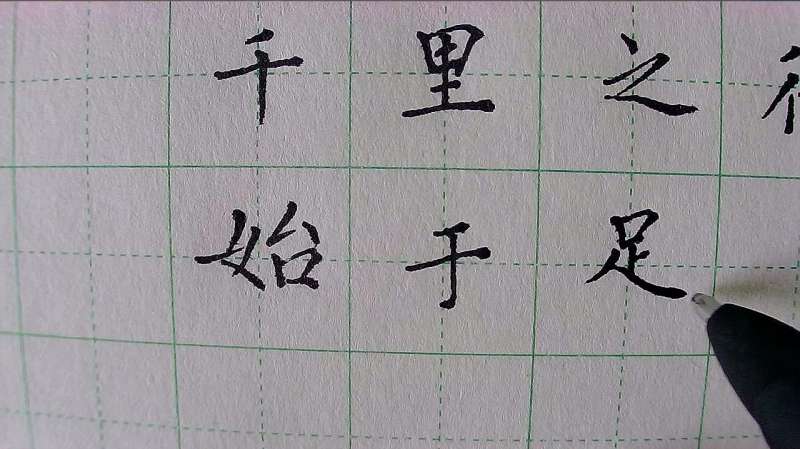 千里之
始于足